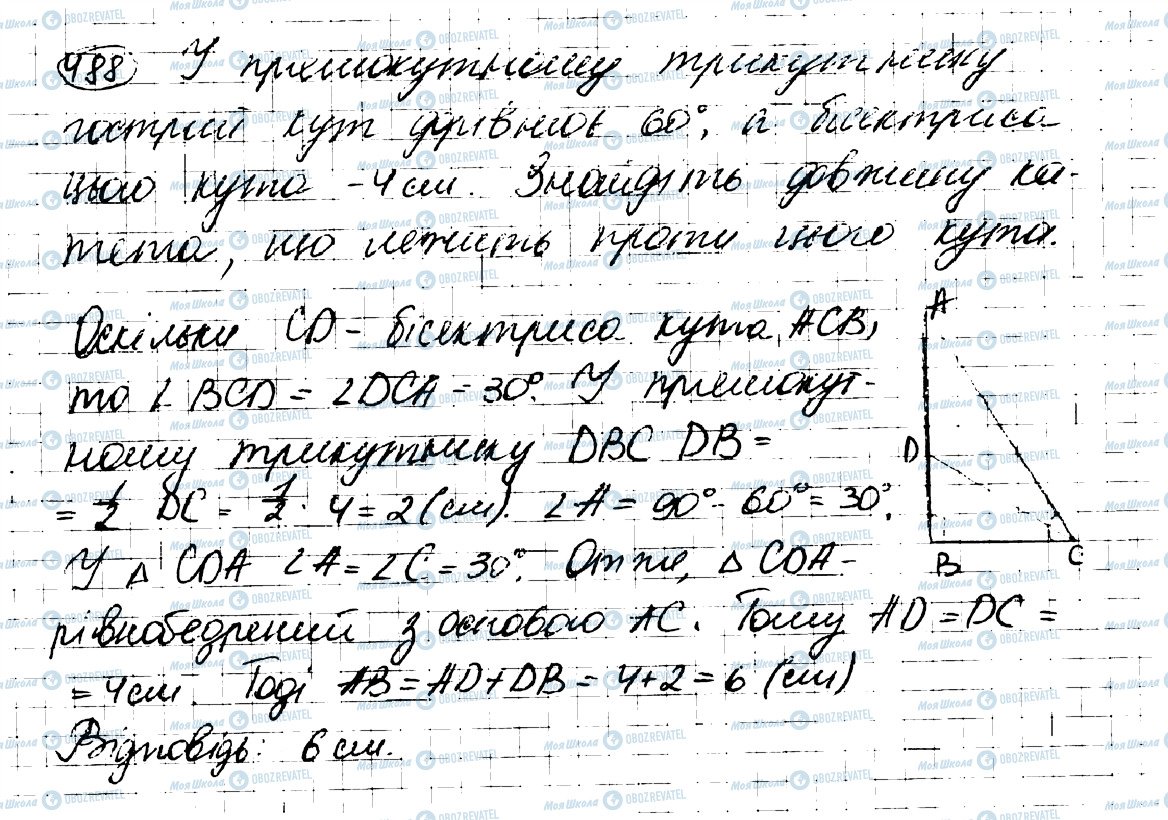 488 У прямокутному трикутнику
гострий кут дорівнює 60°, а бісектриса
цього кута - 4 см. Знайдіть довжину ка-
тета, що лежить проти цього кута.
Оскільки CD - бісектриса кута ACB,
то ∠BCD = ∠DCA = 30°. У прямокут-
ному трикутнику DBC DB =
= 1/2 DC = 1/2 · 4 = 2 (см). ∠A = 90° - 60° = 30°.
У △ CDA ∠A = ∠C = 30°. Отже, △ CDA -
рівнобедрений з основою AC. Тому AD = DC =
= 4 см. Тоді AB = AD + DB = 4 + 2 = 6 (см)
Відповідь: 6 см.
A
D
B
C